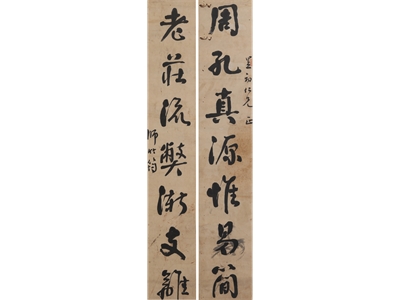 周孔真源惟易簡
老莊流弊漸支離